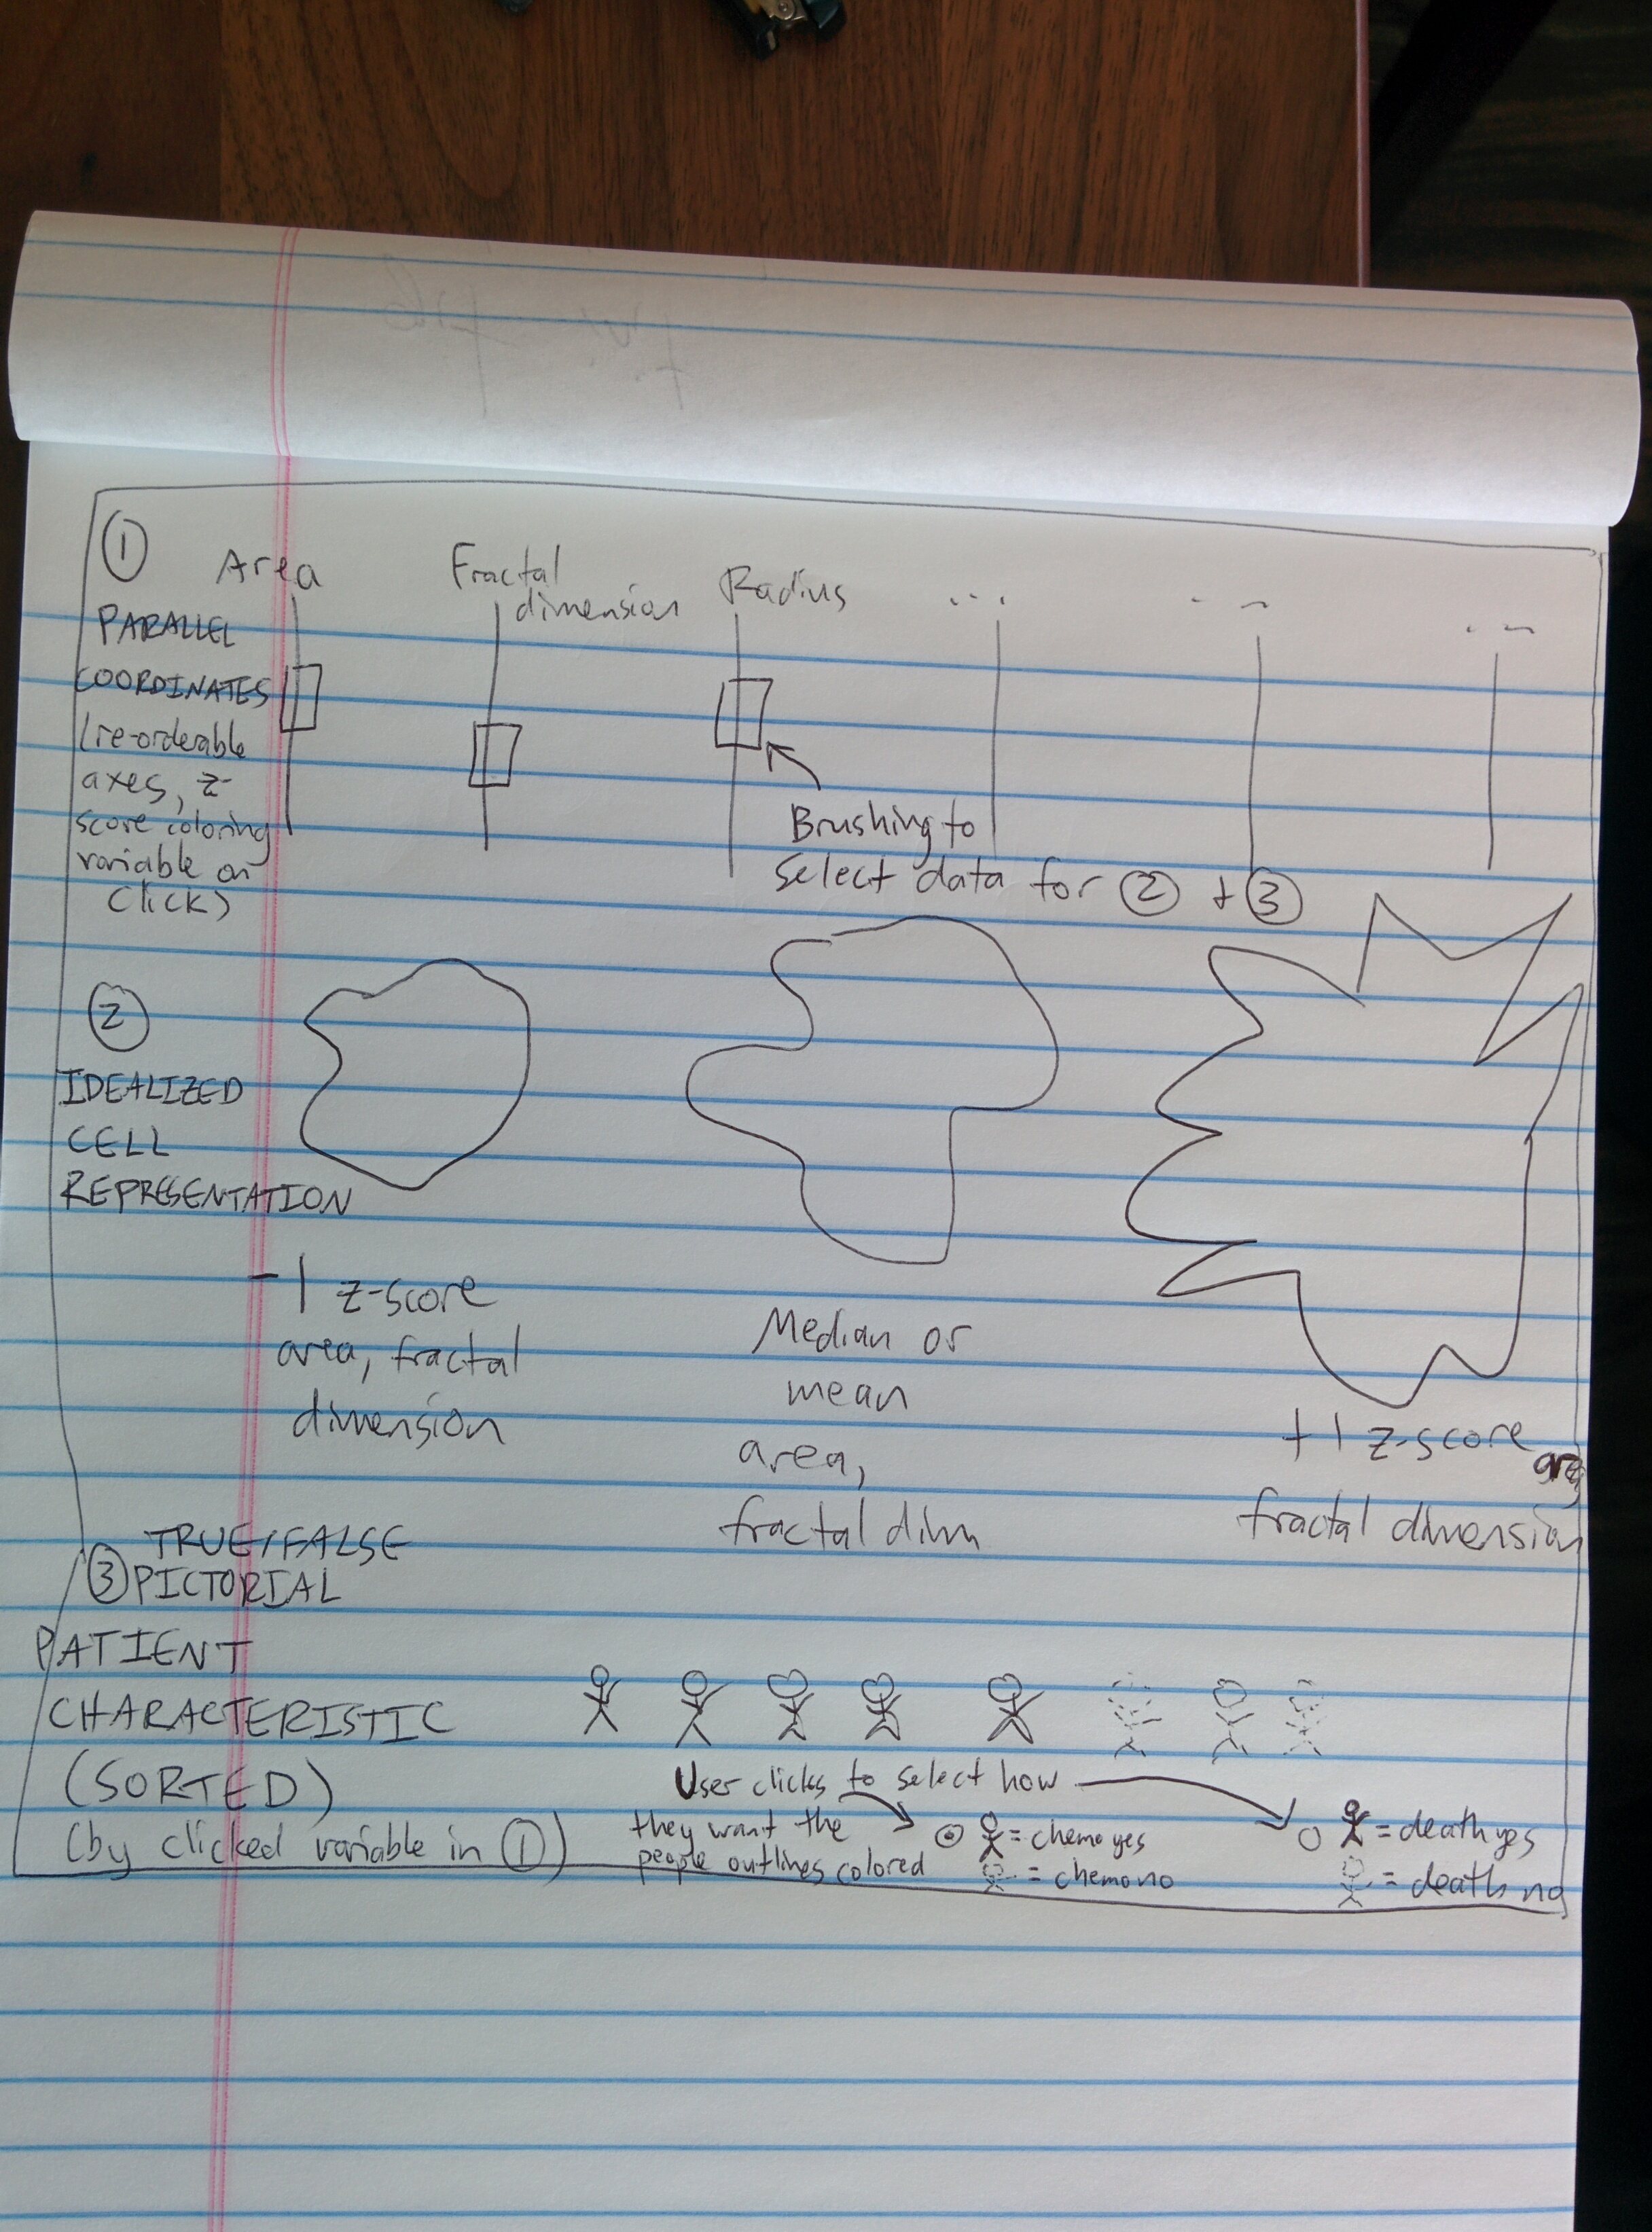 1
Area
Fractal
dimension
Radius
...
...
...
PARALLEL
COORDINATES
(re-orderable
axes, z-
score coloring
variable on
click)
Brushing to
select data for 2 + 3
2
IDEALIZED
CELL
REPRESENTATION
-1 z-score
area, fractal
dimension
Median or
mean
area,
fractal dim
+1 z-score area,
fractal dimension
TRUE/FALSE
3 PICTORIAL
PATIENT
CHARACTERISTIC
(SORTED)
(by clicked variable in 1)
User clicks to select how
they want the
people outlines colored
= chemo yes
= chemo no
= death yes
= death no